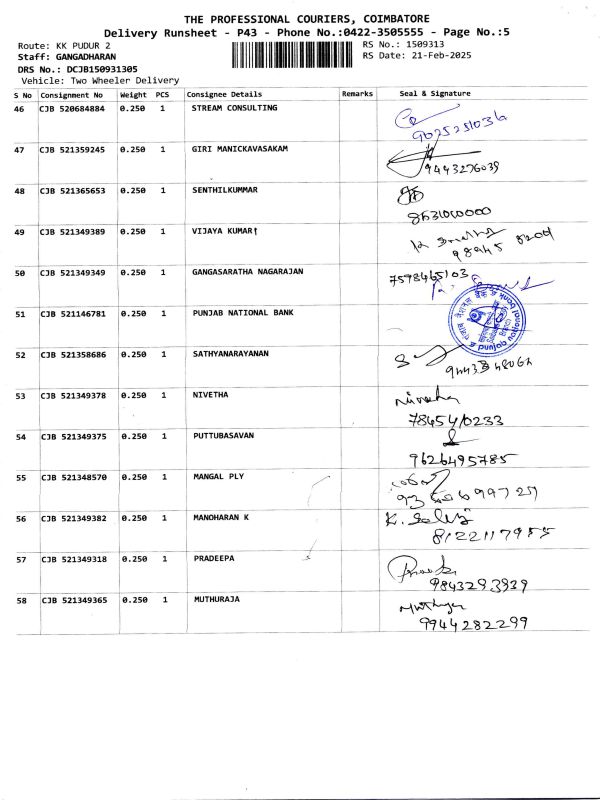 THE PROFESSIONAL COURIERS, COIMBATORE
Delivery Runsheet - P43 - Phone No.:0422-3505555 - Page No.:5
Route: KK PUDUR 2 RS No.: 1509313
Staff: GANGADHARAN RS Date: 21-Feb-2025
DRS No.: DCJB150931305
Vehicle: Two Wheeler Delivery
S No Consignment No Weight PCS Consignee Details Remarks Seal & Signature
46 CJB 520684884 0.250 1 STREAM CONSULTING
9625251036
47 CJB 521359245 0.250 1 GIRI MANICKAVASAKAM
9443276039
48 CJB 521365653 0.250 1 SENTHILKUMMAR
49 CJB 521349389 0.250 1 VIJAYA KUMAR
50 CJB 521349349 0.250 1 GANGASARATHA NAGARAJAN
7598465103
51 CJB 521146781 0.250 1 PUNJAB NATIONAL BANK
punjab national bank
52 CJB 521358686 0.250 1 SATHYANARAYANAN
53 CJB 521349378 0.250 1 NIVETHA
Nivetha
7845410233
54 CJB 521349375 0.250 1 PUTTUBASAVAN
9626495785
55 CJB 521348570 0.250 1 MANGAL PLY
56 CJB 521349382 0.250 1 MANOHARAN K
8122117955
57 CJB 521349318 0.250 1 PRADEEPA
9843293939
58 CJB 521349365 0.250 1 MUTHURAJA
9944282299